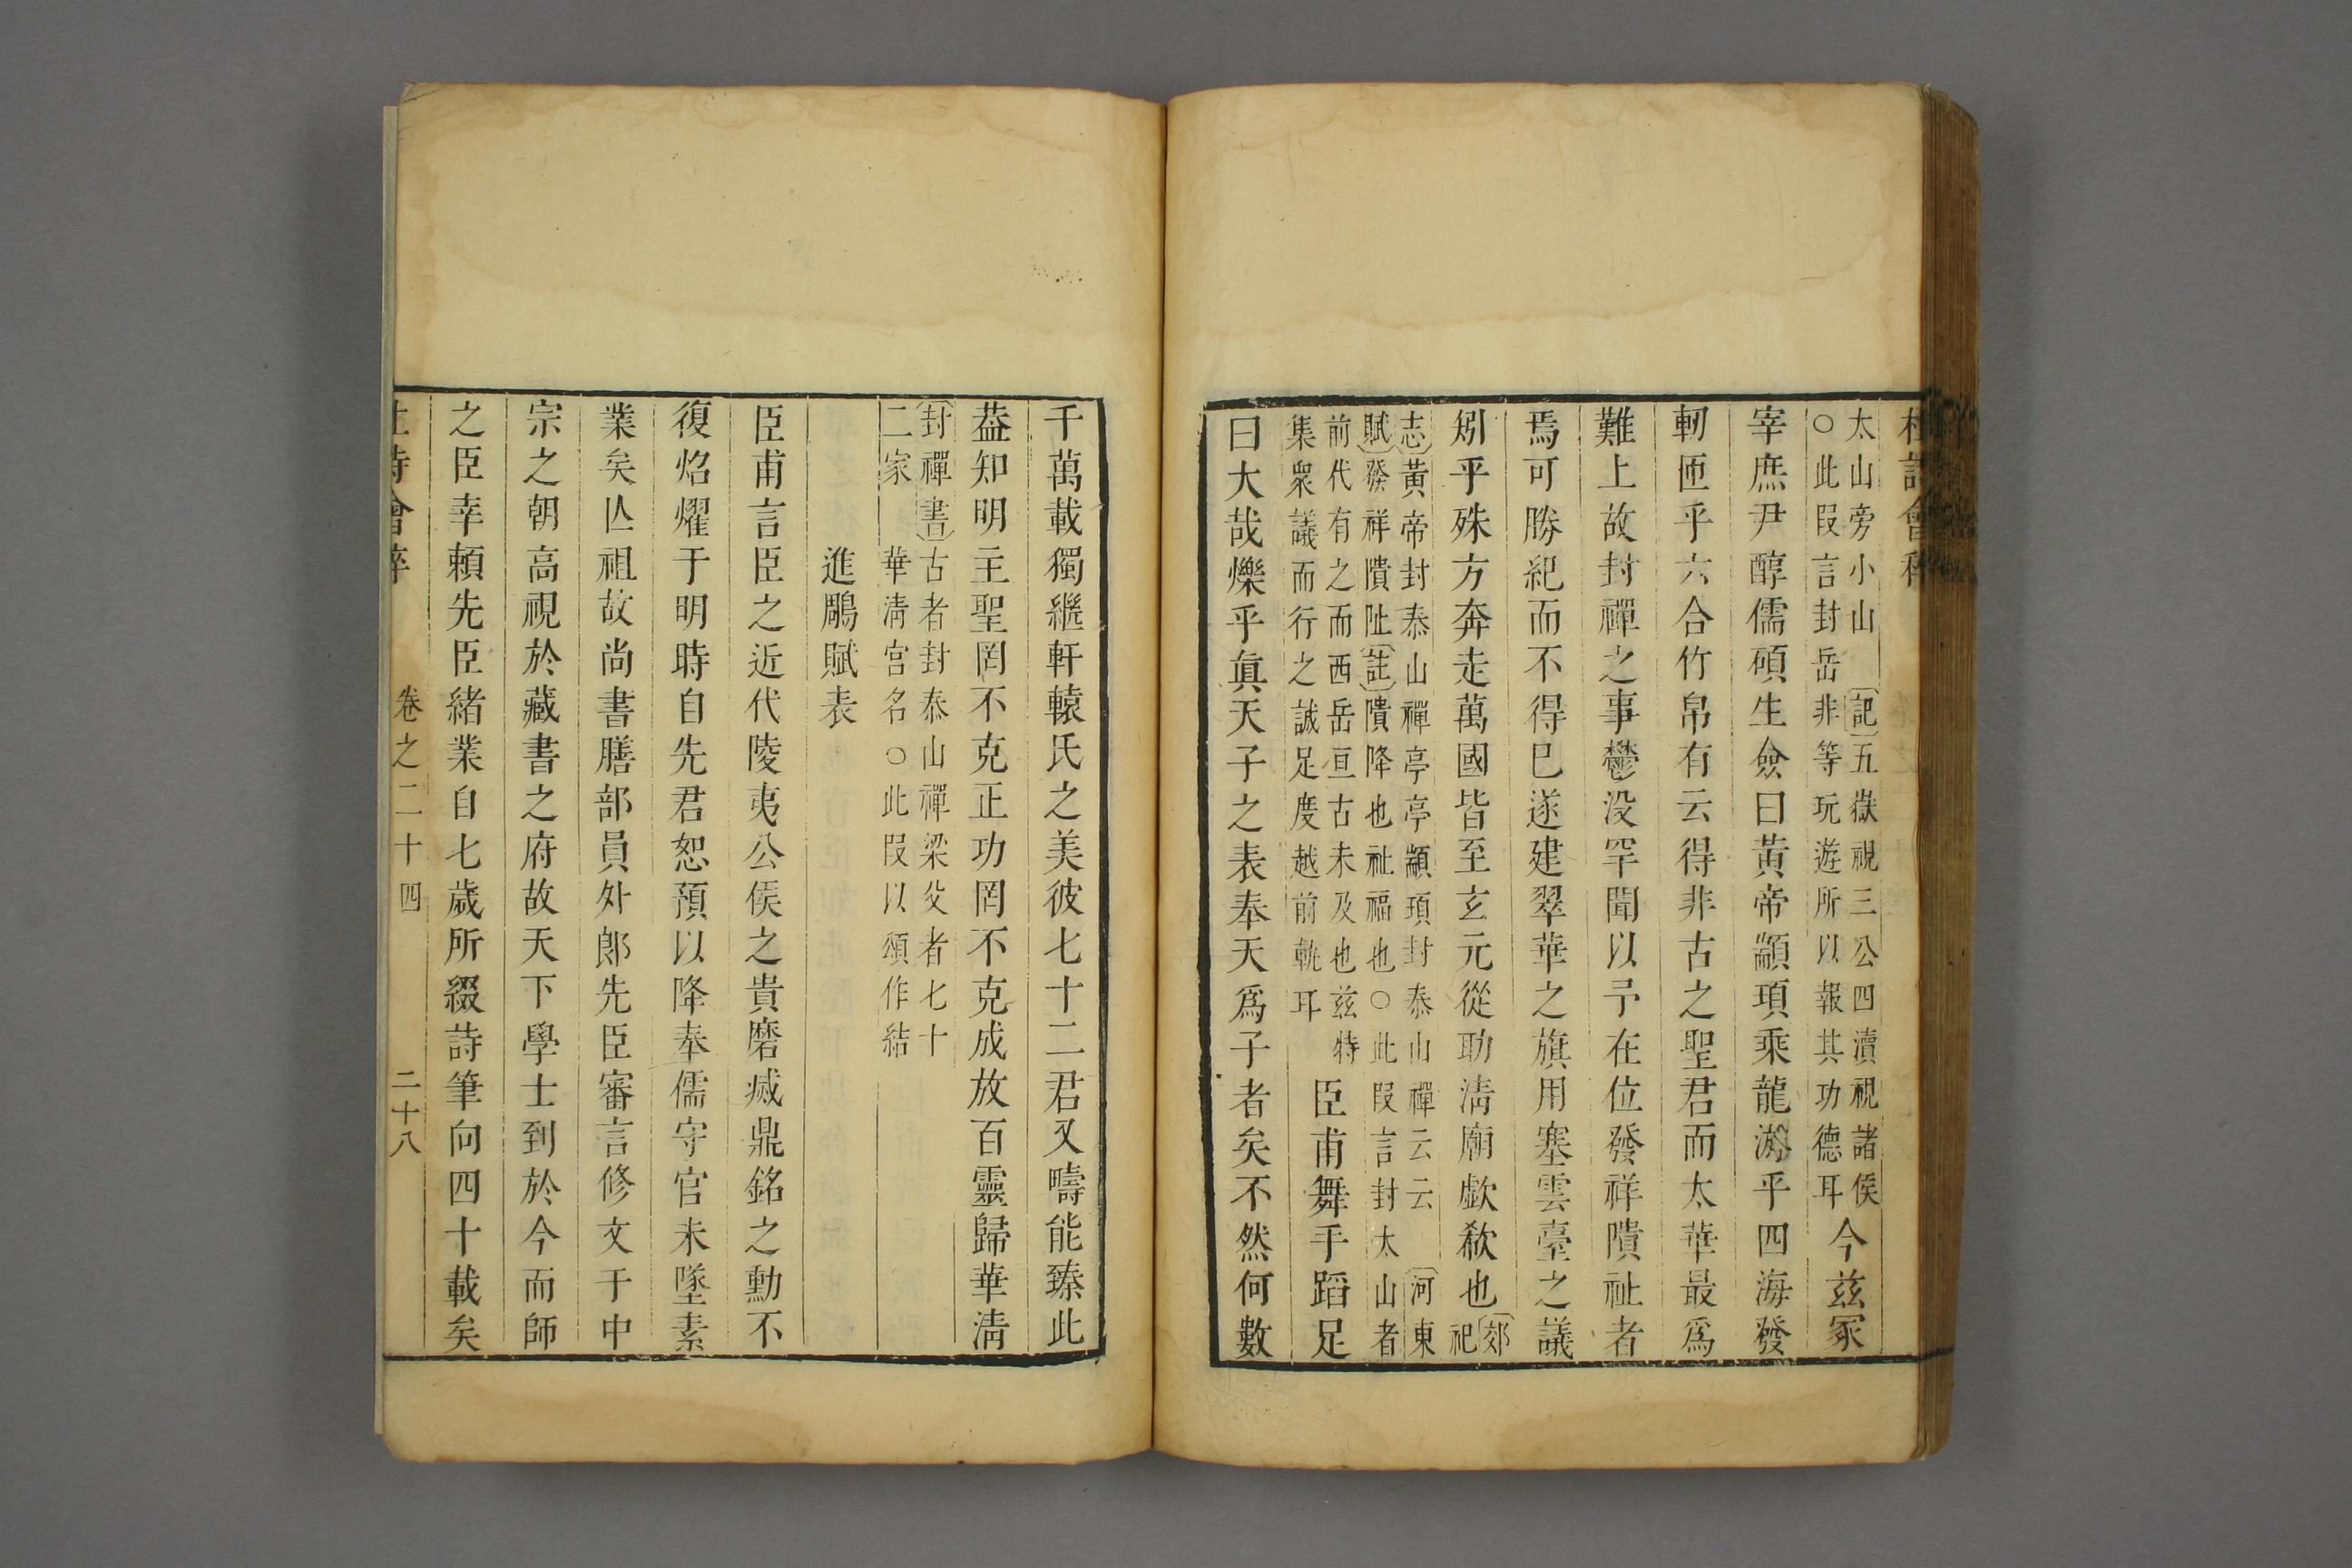 杜詩會稡
太山旁小山〔記〕五嶽視三公四瀆視諸侯
○此叚言封岳非等玩遊所以報其功德耳
今茲冢
宰庶尹醇儒碩生僉曰黃帝顓頊乘龍游乎四海發
軔匝乎六合竹帛有云得非古之聖君而太華最爲
難上故封禪之事鬱没罕聞以予在位發祥隤祉者
焉可勝紀而不得已遂建翠華之旗用塞雲臺之議
矧乎殊方奔走萬國皆至玄元從助淸廟歔欷也
〔郊
祀
志〕黃帝封泰山禪亭亭顓頊封泰山禪云云〔河東
賦〕發祥隤阯〔註〕隤降也祉福也○此叚言封太山者
前代有之而西岳亘古未及也茲特
集衆議而行之誠足度越前軌耳
臣甫舞手蹈足
曰大哉爍乎眞天子之表奉天爲子者矣不然何數
千萬載獨繼軒轅氏之美彼七十二君又疇能臻此
葢知明主聖罔不克正功罔不克成放百靈歸華淸
〔封禪書〕古者封泰山禪梁父者七十
二家　華淸宮名○此叚以頌作結
進鵰賦表
臣甫言臣之近代陵夷公侯之貴磨滅鼎銘之勳不
復炤燿于明時自先君恕預以降奉儒守官未墜素
業矣亾祖故尚書膳部員外郎先臣審言修文于中
宗之朝高視於藏書之府故天下學士到於今而師
之臣幸賴先臣緒業自七歲所綴詩筆向四十載矣
杜詩會稡　卷之二十四　二十八